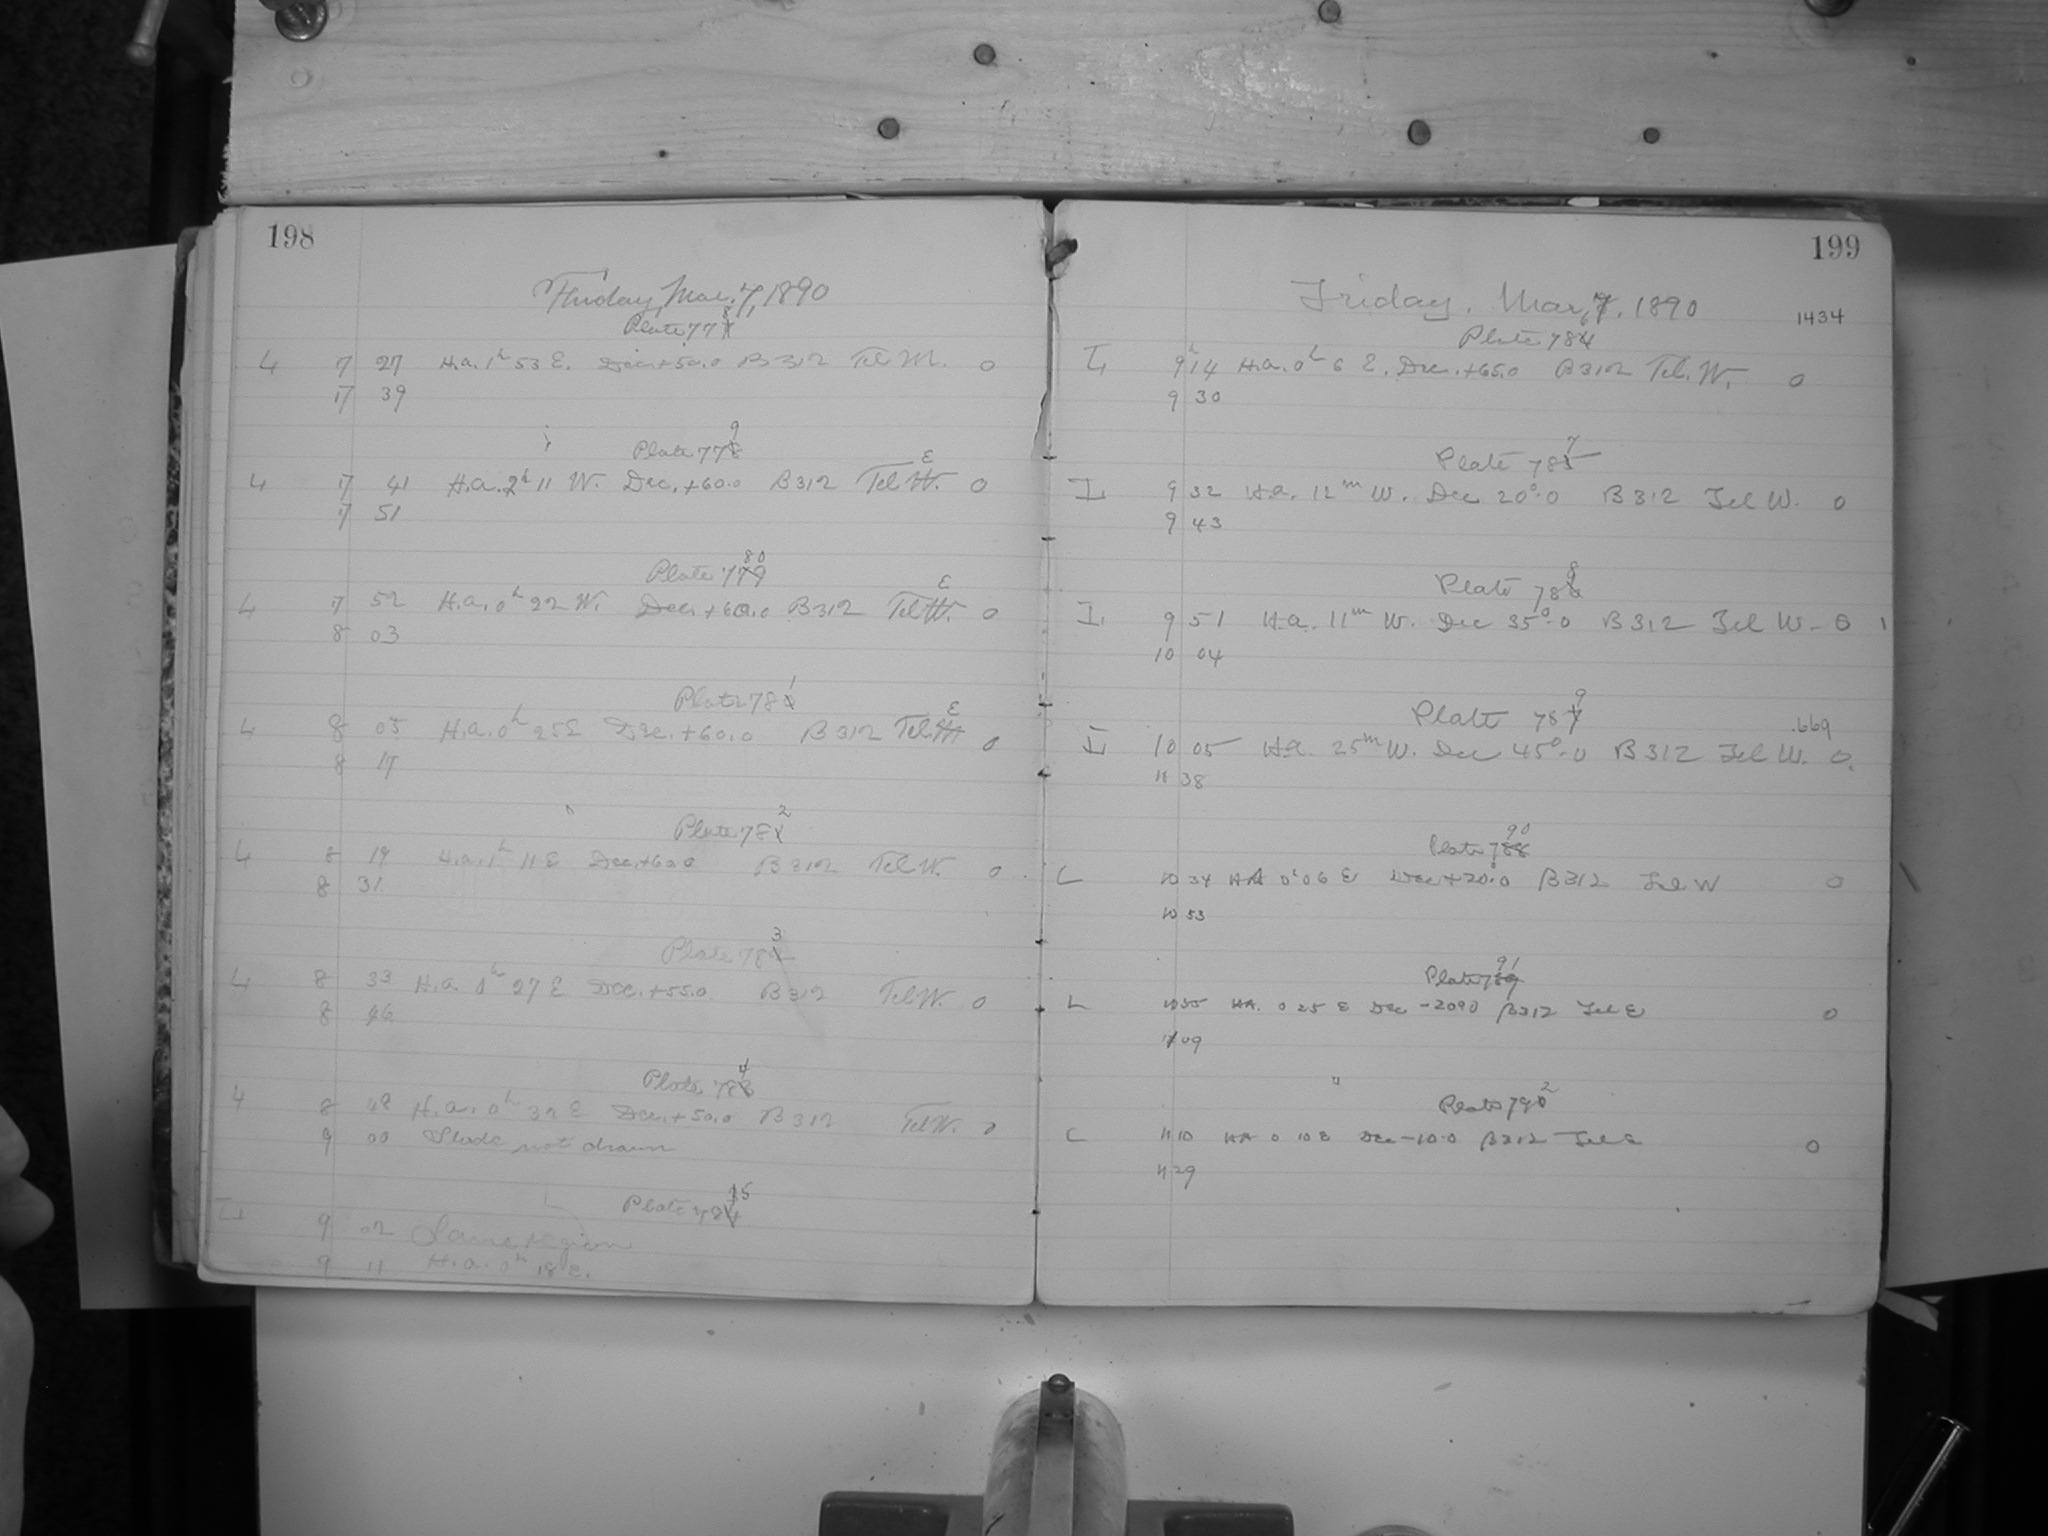 198
Friday, Mar. 7, 1890
8
Plate 777
4 7 27 H.a. 1h 53 E. Dec. +50.0 B 312 Tel W. 0
7 39
9
Plate 778 E
4 7 41 H.a. 2h 11 W. Dec. +60.0 B 312 Tel W. 0
7 51
80
Plate 779 E
4 7 52 H.a. 0h 22 W. Dec. +60.0 B 312 Tel W. 0
8 03
1
Plate 780 E
4 8 05 H.a. 0h 25 E Dec. +60.0 B 312 Tel. W 0
8 17
2
Plate 781
4 8 19 H.a. 1h 11 E Dec. +60.0 B 312 Tel W. 0
8 31
3
Plate 782
4 8 33 H.a. 1h 27 E Dec. +55.0 B 312 Tel W. 0
8 46
4
Plate 783
4 8 48 H.a. 0h 32 E Dec. +50.0 B 312 Tel W. 0
9 00 Slide not drawn
85
Plate 784
I 9 02 Same region
9 11 H.a. 0h 18 E.
199
Friday, Mar. 7, 1890
1434
6
Plate 784
I 9h 14 H.a. 0h 6 E. Dec. +65.0 B 312 Tel. W. 0
9 30
7
Plate 785
I 9 32 H.a. 12m W. Dec 20°.0 B 312 Tel W. 0
9 43
8
Plate 786
I 9 51 H.a. 11m W. Dec 35°.0 B 312 Tel W. 0
10 04
9
Plate 787 .669
I 10 05 H.a. 25m W. Dec 45°.0 B 312 Tel W. 0.
38
90
Plate 788
L 10 34 HA 0h 06 E Dec +20.0 B 312 Tel W 0
10 53
91
Plate 789
L 10 55 HA. 0 25 E Dec -20°0 B 312 Tel E 0
11 09
2
Plate 790
L 11 10 HA 0 10 E Dec -10.0 B 312 Tel E 0
11 29